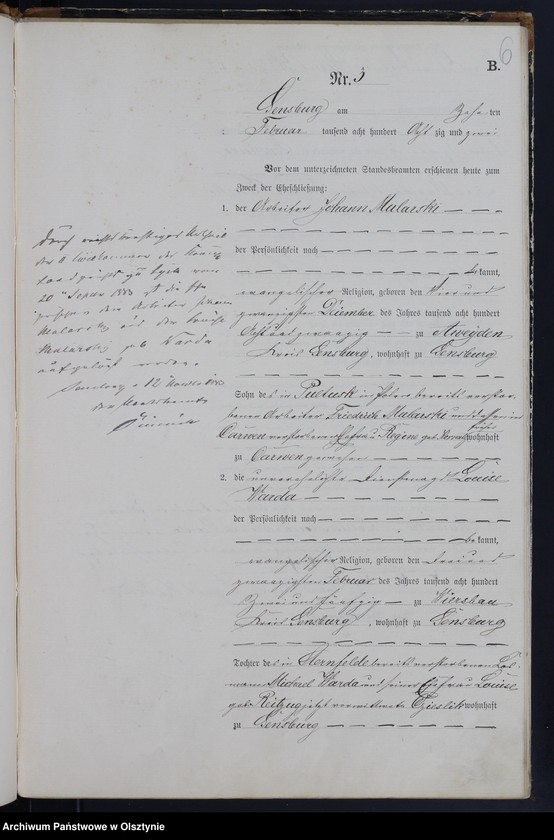 6
B.
Nr. 5
Sensburg am Zehnten
Februar tausend acht hundert Acht zig und zwei
Vor dem unterzeichneten Standesbeamten erschienen heute zum
Zweck der Eheschließung:
1. der Arbeiter Johann Mularski
der Persönlichkeit nach
bekannt,
evangelischer Religion, geboren den Vier und
zwanzigsten Dezember des Jahres tausend acht hundert
Acht und zwanzig zu Aweyden
Kreis Sensburg, wohnhaft zu Sensburg
Sohn des in Pultusk in Polen bereits verstor-
benen Arbeiter Friedrich Mularski und dessen in
Carwen verstorbenen Ehefrau Regine geb. wohnhaft
zu Carwen gewesen
2. die unverehelichte Dienstmagd Louise
Warda
der Persönlichkeit nach
bekannt,
evangelischer Religion, geboren den Drei und
zwanzigsten Februar des Jahres tausend acht hundert
Zwei und fünfzig zu Wiersbau
Kreis Sensburg, wohnhaft zu Sensburg
Tochter des in Sternfelde bereits verstorbenen
Michael Warda und seiner Ehefrau Louise
geb. Reitzug jetzt verwittwete wohnhaft
zu Sensburg
Durch rechtskräftiges Urtheil
der II Civilkammer des König.
Landgericht zu Lyck vom
20 1883 ist die Ehe
zwischen dem Arbeiter Johann
Mularski und der Louise
Mularski geb. Warda
aufgelöst worden.
Sensburg, 12
Der Standesbeamte
Archiwum Państwowe w Olsztynie